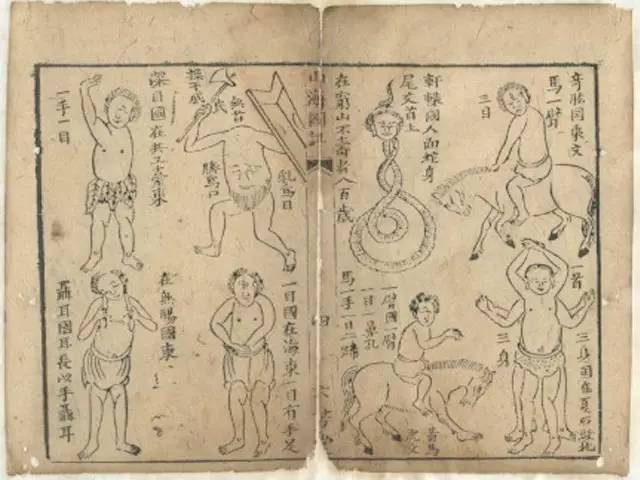 奇肱国乘文
馬一臂
三目
軒轅國人面蛇身
尾交首上
在窮山不壽者八百歲
一首
三身国在夏后啟北
三身
一臂國一臂
一目一鼻孔
馬一手一目
黃馬
虎文
山海圖
四
無首
乳為目
臍為口
操干戚
深目國在共工臺東
一手一目
一目國在海東一目有手足
在無腸國東
聶耳國耳長以手聶耳